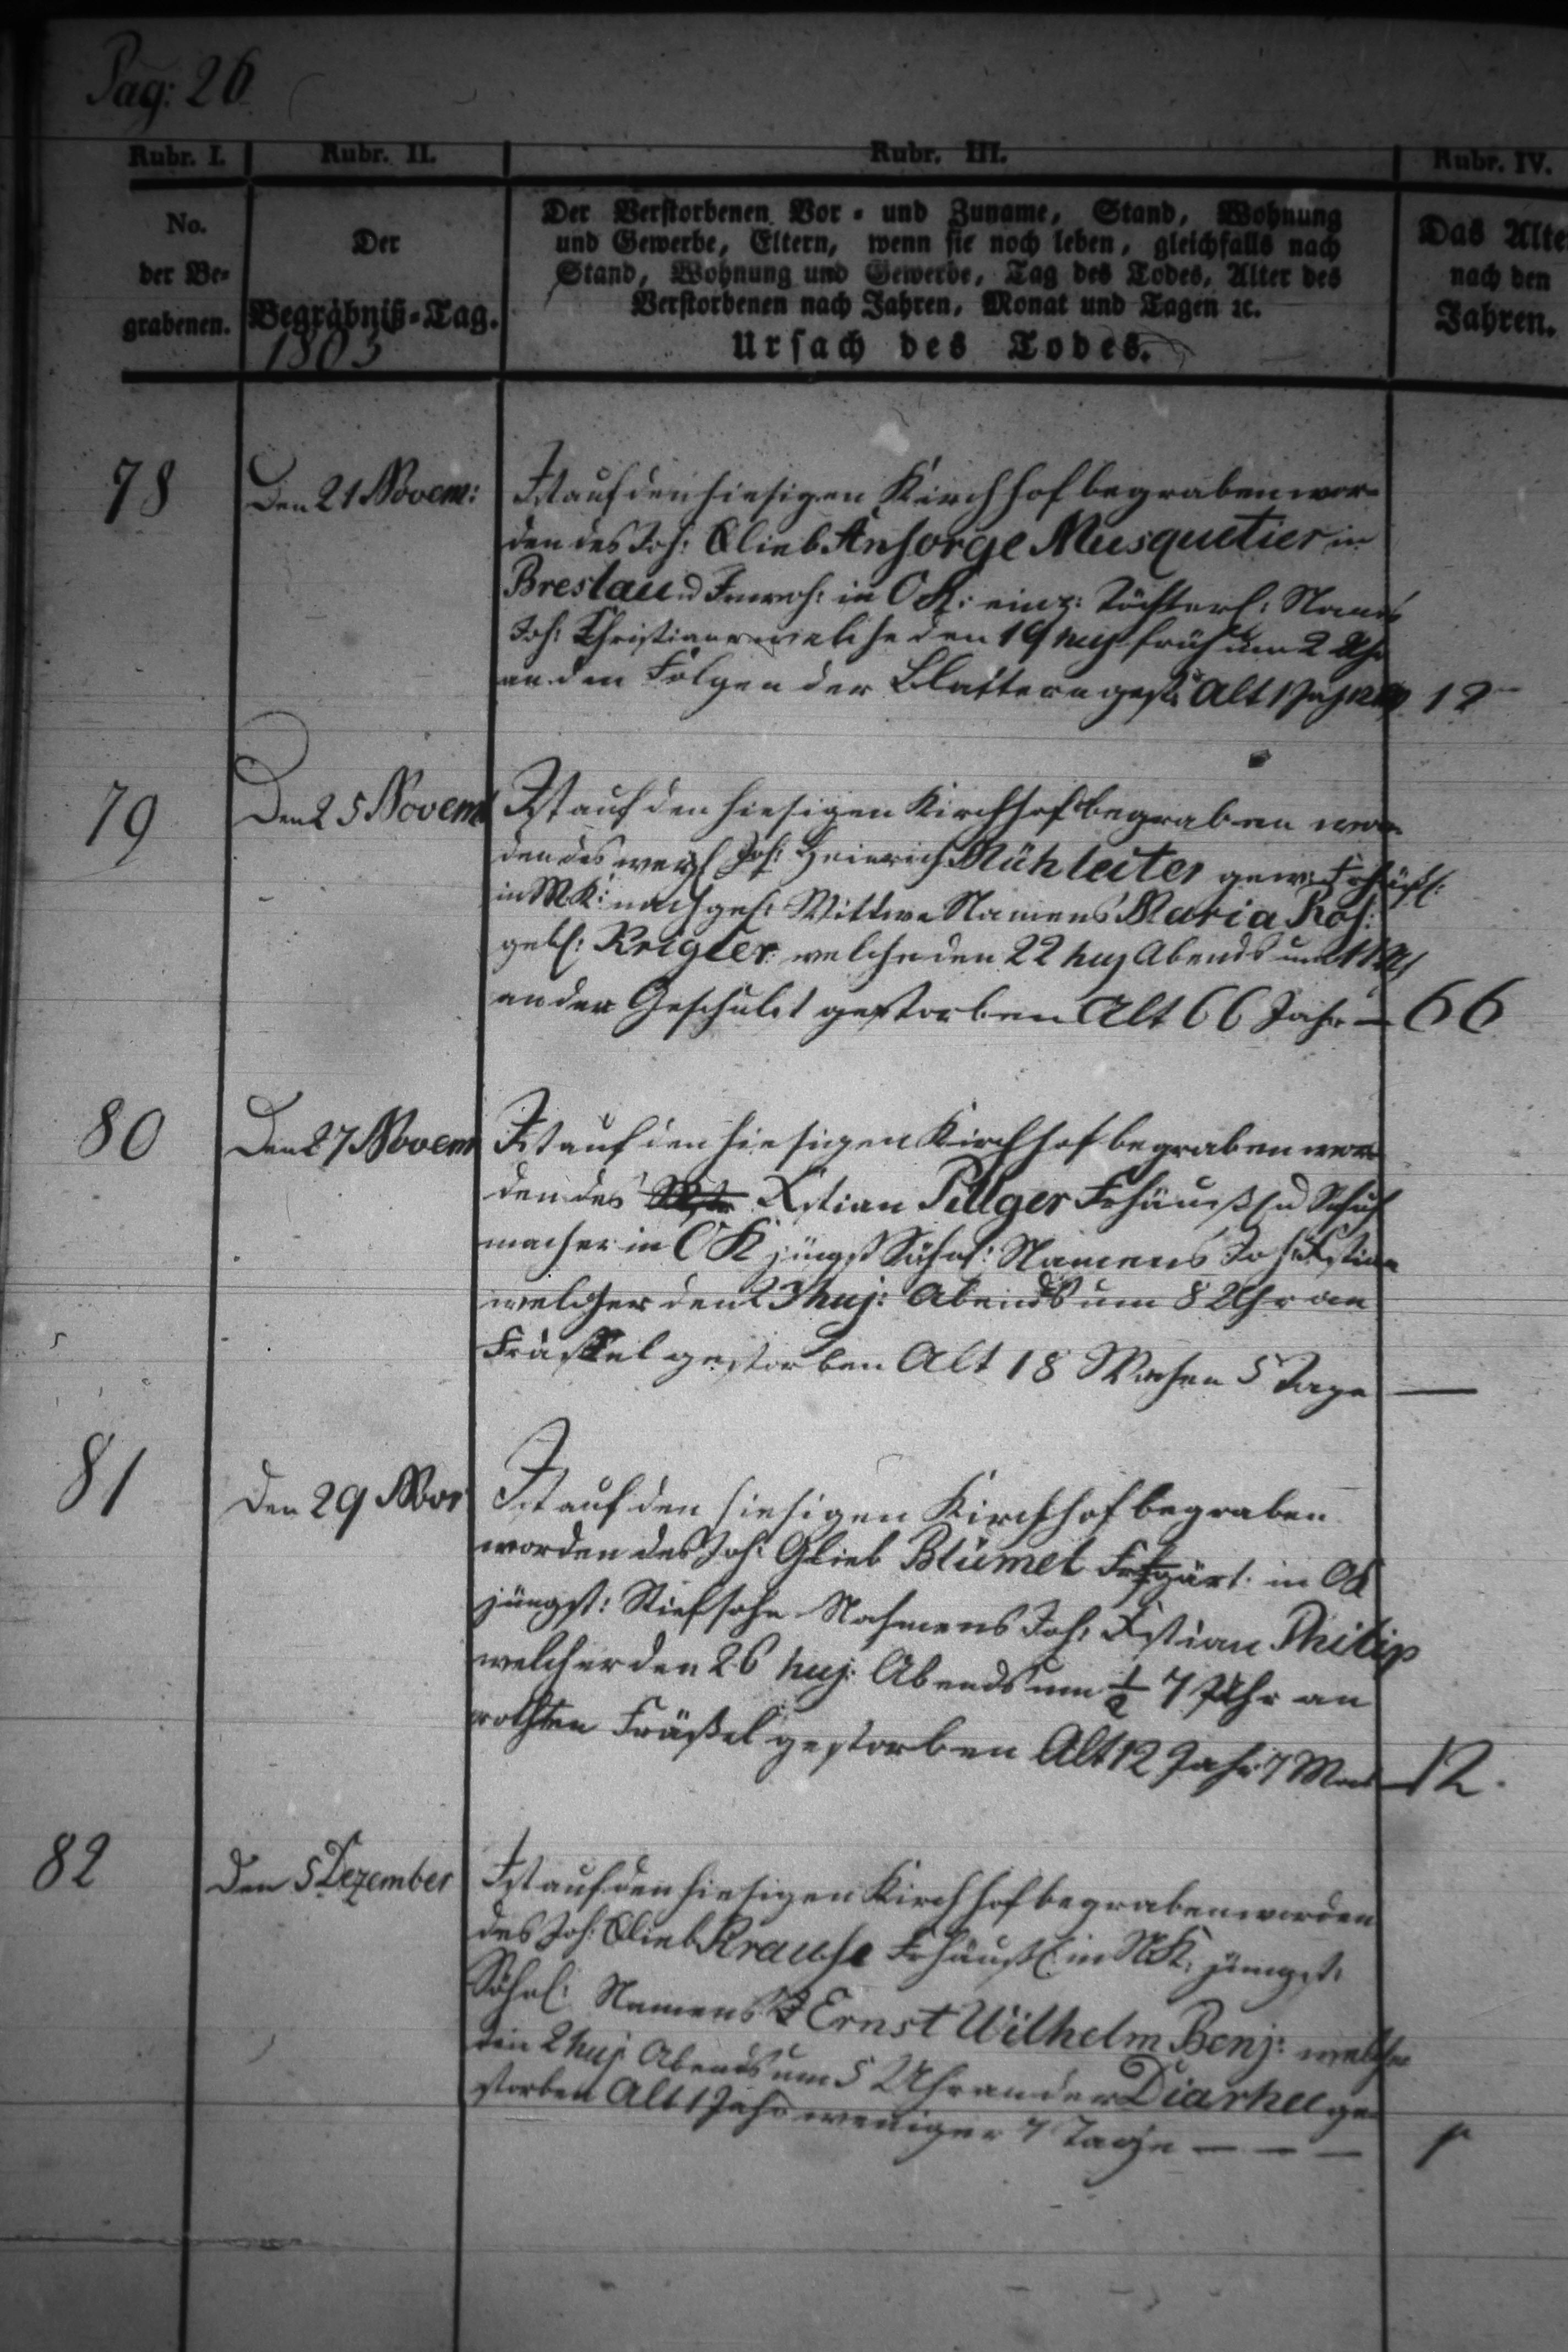 Pag: 26
Rubr. I. Rubr. II. Rubr. III. Rubr. IV.
No.
der Be-
grabenen.
Der
Begräbniß-Tag.
1803
Der Verstorbenen Vor- und Zuname, Stand, Wohnung
und Gewerbe, Eltern, wenn sie noch leben, gleichfalls nach
Stand, Wohnung und Gewerbe, Tag des Todes, Alter des
Verstorbenen nach Jahren, Monat und Tagen ꝛc.
Ursach des Todes.
Das Alte
nach den
Jahren.
78 Den 21 Novem: Ist auf den hiesigen Kirchhof begraben wor-
den des Joh: Glieb Ansorge Musquetier in
Breslau u Inwoh: in OK: einz: Töchterl: Namens
Joh: Christiane welche den 19 huj früh um 2 Uhr
an den Folgen der Blattern gest: Alt 1 Jah 12
79 Den 25 Novem Ist auf den hiesigen Kirchhof begraben wor-
den des weyl Joh: Heinrich Mühleiter gew: Frhäusl:
in MK: nachgel: Wittwe Namens Maria Ros:
geb: Krigler welche den 22 huj Abends um 11 Uhr
an der Geschulst gestorben Alt 66 Jahr — 66
80 Den 27 Novem Ist auf den hiesigen Kirchhof begraben wor-
den des Xstian Pillger Frhäusl u Schuh
macher in OK jüngst Söhnl: Namens Joh Xstian
welcher den 23 huj: Abends um 8 Uhr an
Fräßel gestorben Alt 18 Wochen 5 Tage —
81 Den 29 Nov Ist auf den hiesigen Kirchhof begraben
worden des Joh: Glieb Blümel Frgärt: in OK
jüngst: Stiefsohn Nahmens Joh: Xstian Philip
welcher den 26 huj: Abends um ½ 7 Uhr an
rothen Fräßel gestorben Alt 12 Jahr 7 Mon 12.
82 Den 5 Dezember Ist auf den hiesigen Kirchhof begraben worden
des Joh: Glieb Krause Frhäusl: in NK: jüngst:
Söhnl: Namens Ernst Wilhelm Benj: welcher
den 2 huj Abends um 5 Uhr an der Diarhee ge-
storben Alt 1 Jahr weniger 7 Tage — — —